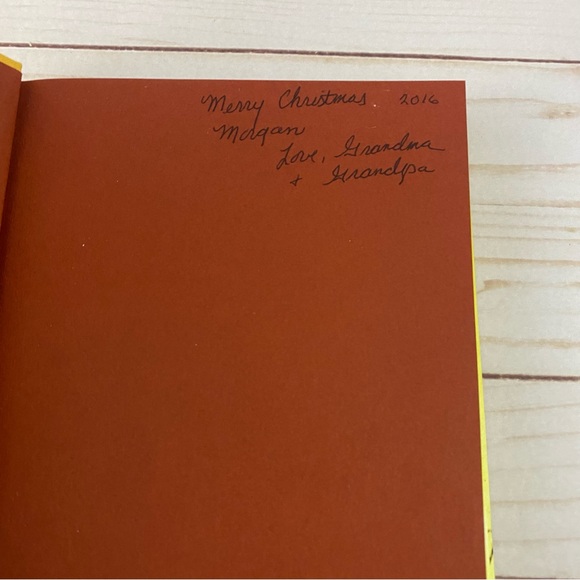 Merry Christmas 2016
Morgan
Love, Grandma
+ Grandpa